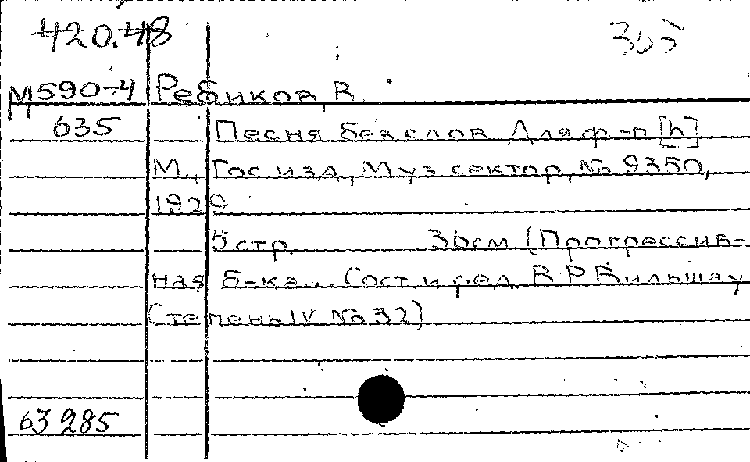 420.48
М590-4 Ребиков, В.
635 Песня без слов. Для ф-п [h]
М., Гос. изд., Муз сектор, № 9350,
1929
5 стр. 36см (Прогрессив-
ная б-ка... Сост. и ред. В. Р. Вильшау
Степень IV № 32)
63285